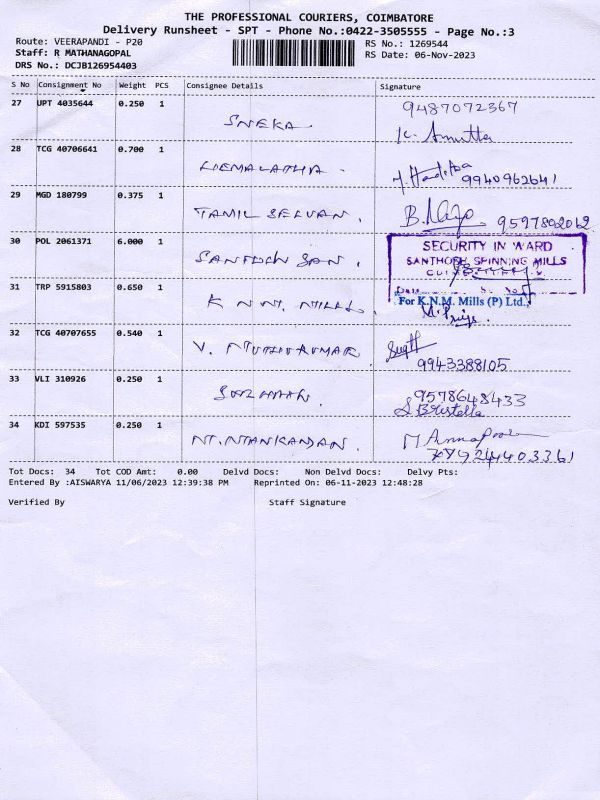 THE PROFESSIONAL COURIERS, COIMBATORE
Delivery Runsheet - SPT - Phone No.:0422-3505555 - Page No.:3
Route: VEERAPANDI - P20
Staff: R MATHANAGOPAL
DRS No.: DCJB126954403
RS No.: 1269544
RS Date: 06-Nov-2023
S No Consignment No Weight PCS Consignee Details Signature
27 UPT 4035644 0.250 1 SNEKA 9487072367
K. Amutha
28 TCG 40706641 0.700 1 HEMALATHA. 9940962641
29 MGD 180799 0.375 1 TAMIL SELVAN. 9597802062
30 POL 2061371 6.000 1 SANTOCH SAN.
SECURITY IN WARD
SANTHOSH SPINNING MILLS
Date
31 TRP 5915803 0.650 1 K N M. MILLS
For K.N.M. Mills (P) Ltd.,
32 TCG 40707655 0.540 1 V. MUTHUKUMAR
9943388105
33 VLI 310926 0.250 1 9578648433
34 KDI 597535 0.250 1
Tot Docs: 34 Tot COD Amt: 0.00 Delvd Docs: Non Delvd Docs: Delvy Pts:
Entered By :AISWARYA 11/06/2023 12:39:38 PM Reprinted On: 06-11-2023 12:48:28
Verified By Staff Signature